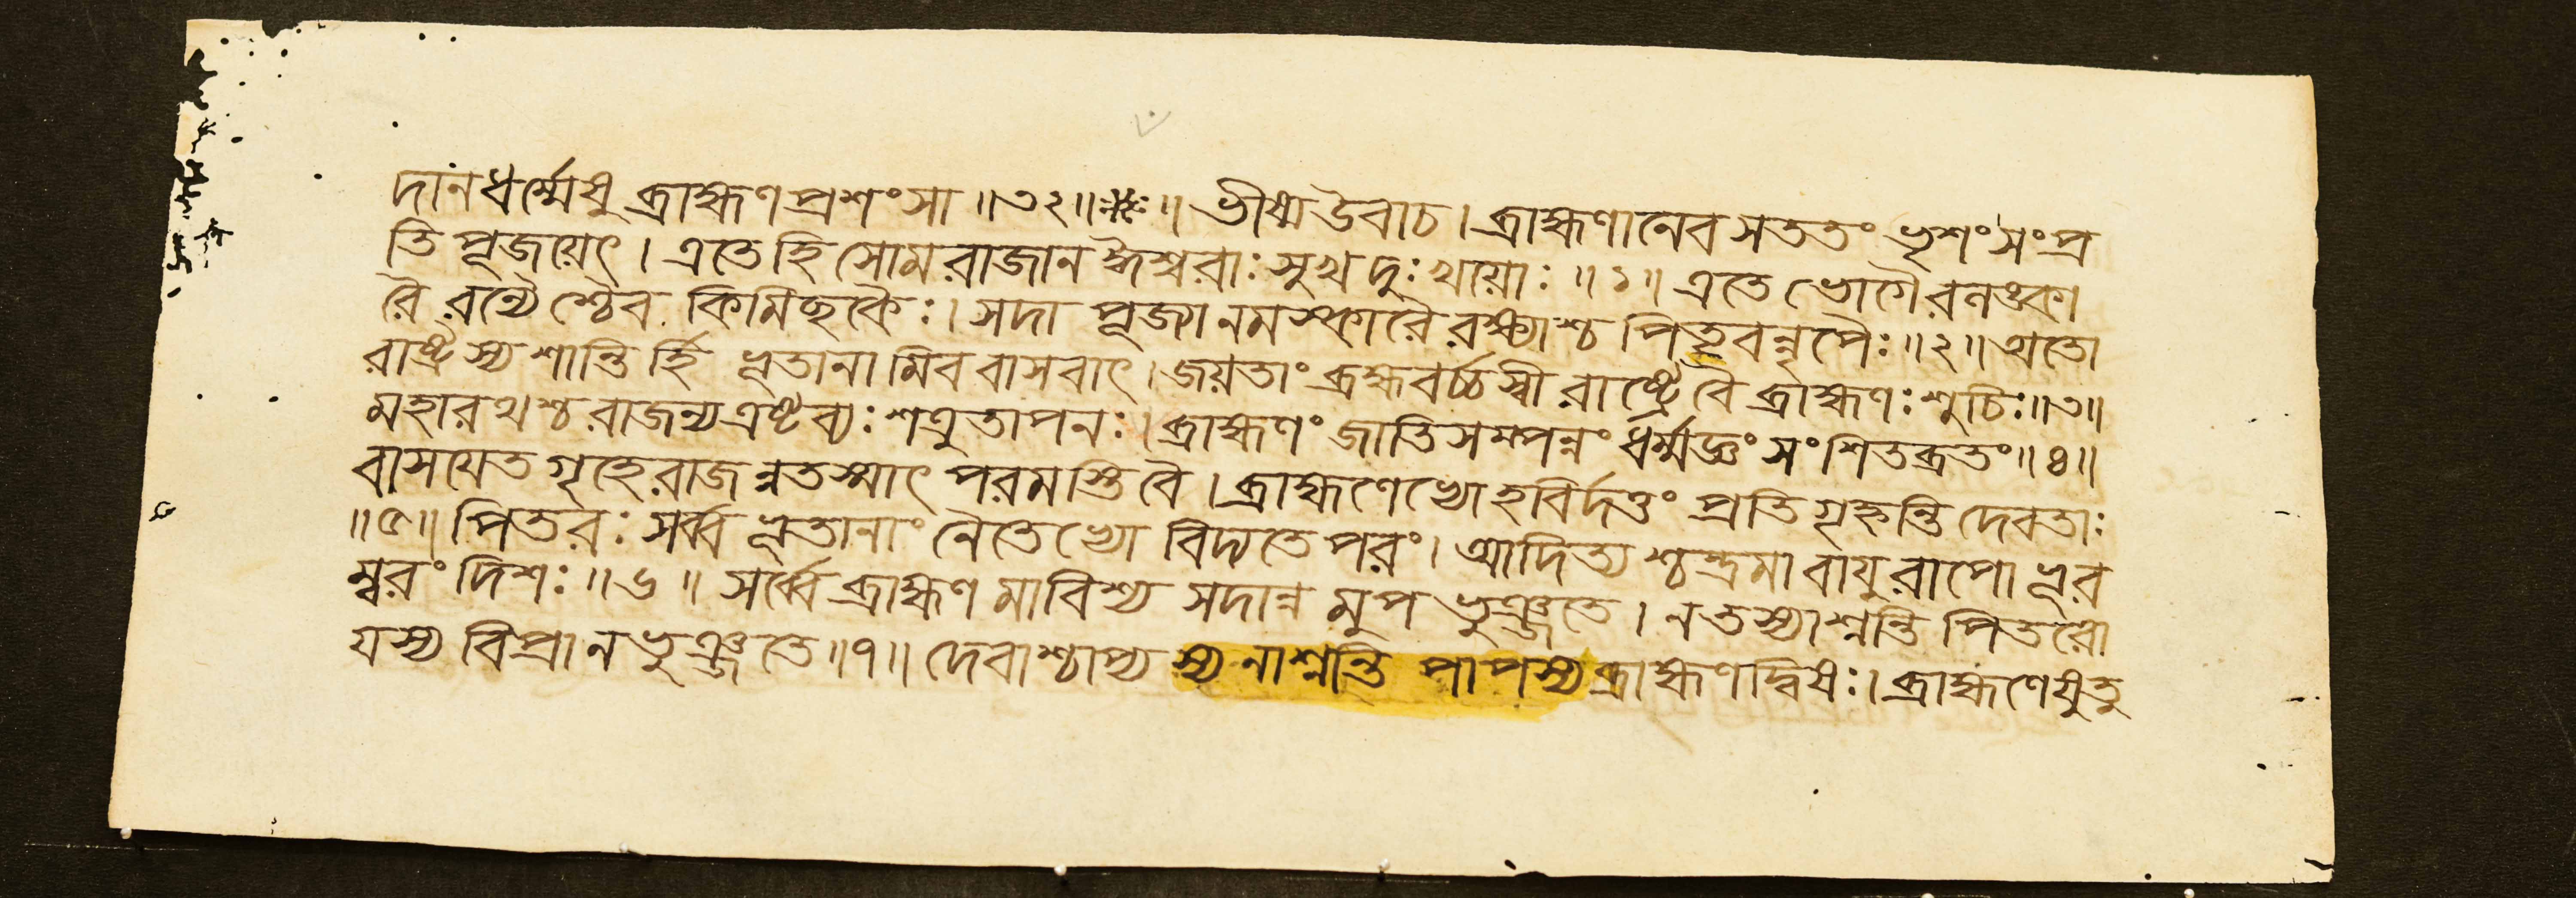 দানধর্ম্মেষু ব্রাহ্মণপ্রশংসা ॥৩২॥※॥ ভীষ্ম উবাচ । ব্রাহ্মণানেব সততং ভৃশং সংপ্র
তি পূজয়েৎ । এতে হি সোমরাজান ঈশ্বরাঃ সুখদুঃখয়োঃ ॥১॥ এতে ভোগৈরলঙ্কা
রৈরন্যৈশ্চৈব কিমিচ্ছকৈঃ । সদা পূজ্যা নমস্কারৈ রক্ষ্যাশ্চ পিতৃবন্নৃপৈঃ ॥২॥ অতো
রাষ্ট্রস্য শান্তির্হি ভূতানামিব বাসবাৎ । জায়তাং ব্রহ্মবর্চ্চস্বী রাষ্ট্রে বৈ ব্রাহ্মণঃ শুচিঃ ॥৩॥
মহারথশ্চ রাজন্য এষ্টব্যঃ শত্রুতাপনঃ । ব্রাহ্মণং জাতিসম্পন্নং ধর্ম্মজ্ঞং সংশিতব্রতং ॥৪॥
বাসয়েত গৃহে রাজন্ন তস্মাৎ পরমস্তি বৈ । ব্রাহ্মণেভ্যো হবির্দত্তং প্রতিগৃহ্নন্তি দেবতাঃ
॥৫॥ পিতরঃ সর্ব্বভূতানাং নৈতেভ্যো বিদ্যতে পরং । আদিত্যশ্চন্দ্রমা বায়ুরাপো ভূর
ম্বরং দিশঃ ॥৬॥ সর্ব্বে ব্রাহ্মণমাবিশ্য সদান্নমুপভুঞ্জতে । ন তস্যাশ্নন্তি পিতরো
যস্য বিপ্রা ন ভুঞ্জতে ॥৭॥ দেবাশ্চাপ্যস্য নাশ্নন্তি পাপস্য ব্রাহ্মণদ্বিষঃ । ব্রাহ্মণেষু তু